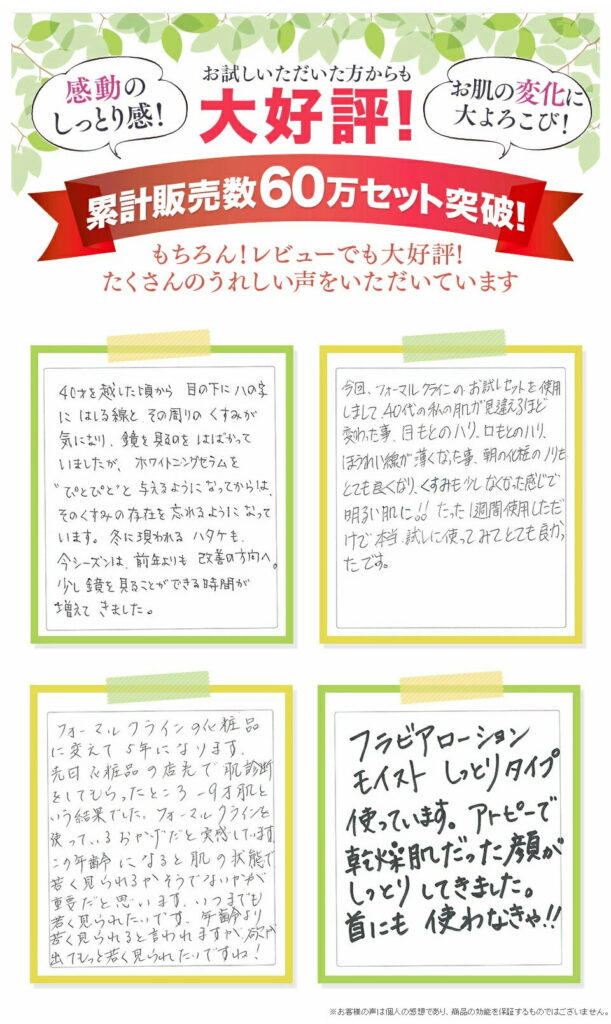 感動の
しっとり感!
お試しいただいた方からも
大好評!
お肌の変化に
大よろこび!
累計販売数60万セット突破!
もちろん!レビューでも大好評!
たくさんのうれしい声をいただいています
40才を越した頃から 目の下にハの字
に はしる線と その周りの くすみが
気になり、鏡を見るのを はばかって
いましたが、ホワイトニングセラムを
"ぴとぴと"と 与えるようになってからは、
そのくすみの存在を 忘れるようになって
います。冬に現われる ハタケも、
今シーズンは、前年よりも 改善の方向へ。
少し鏡を見ることができる時間が
増えて きました。
今回、フォーマルクラインの お試しセットを使用
しまして、40代の私の肌が見違えるほど
変わった事、目もとのハリ、口もとのハリ、
ほうれい線が 薄くなった事、朝の化粧のノリも
とても良くなり、くすみも少しなくなった感じで
明るい肌に!! たった1週間使用しただ
けで本当、試しに使ってみてとても良かっ
たです。
フォーマルクラインの化粧品
に変えて 5年になります。
先日 化粧品の店先で肌診断
をしてもらったところ −9才肌と
いう結果でした。フォーマルクラインを
使っているおかげだと実感しています。
この年齢になると肌の状態で
若く見られるかそうでないかが
重要だと思います。いつまでも
若く見られたいです。年齢より
若く見られると言われますが、欲が
出てもっと若く見られたいですね!
フラビアローション
モイスト しっとりタイプ
使っています。アトピーで
乾燥肌だった顔が
しっとり してきました。
首にも 使わなきゃ!!
※お客様の声は個人の感想であり、商品の効能を保証するものではございません。